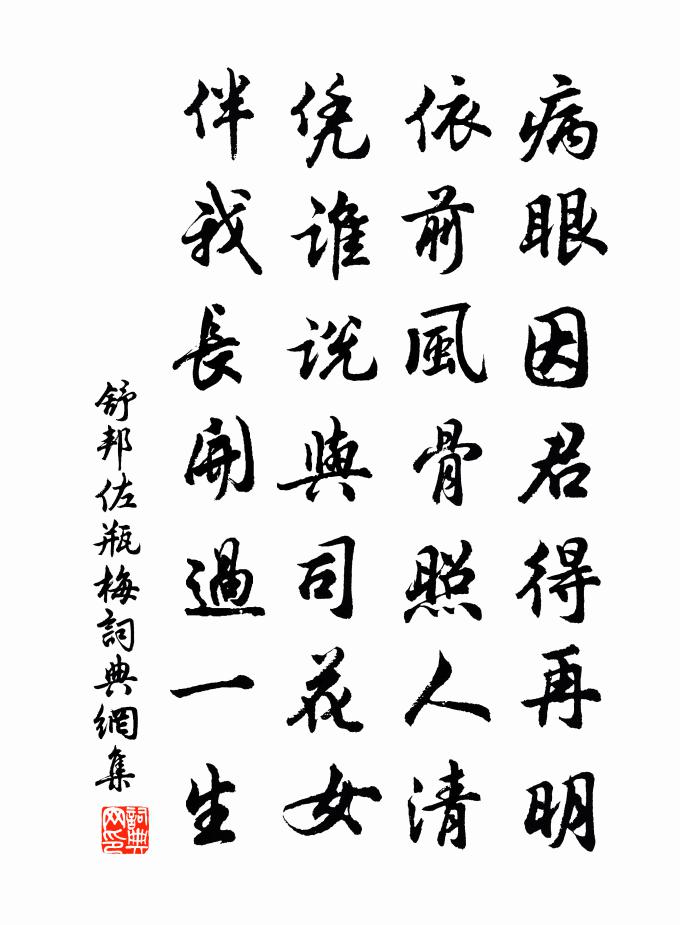 病眼因君得再明
依前風骨照人清
凭誰説與司花女
伴我長開過一生
舒邦佐瓶梅詞典網集
詞典网印